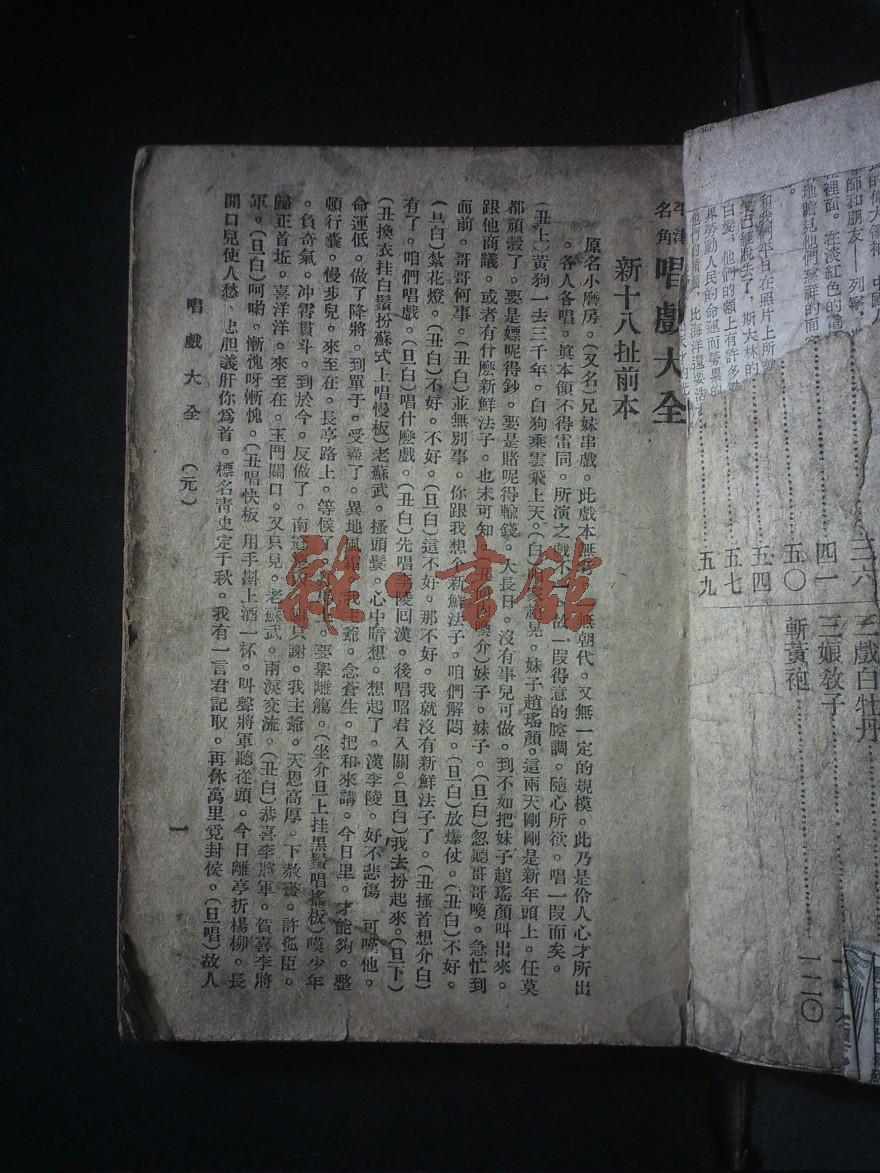 名角
唱戲大全
新十八扯前本
原名小磨房。(又名)兄妹串戲。此戲本無 無朝代。又無一定的規模。此乃是伶人心才所出
。各人各唱。眞本領不得雷同。所演之戲不 故一段得意的腔調。隨心所欲。唱一段而矣。
(丑上)黃狗一去三千年。白狗乘雲飛上天。(白) 妹子趙瑤顏。這兩天剛剛是新年頭上。任莫
都頑殼了。要是嫖呢得鈔。要是賭呢得輸錢。大長日。沒有事兒可做。到不如把妹子趙瑤顏叫出來。
跟他商議。或者有什麽新鮮法子。也未可知。 介)妹子。妹子。(旦白)忽聽哥哥喚。急忙到
面前。哥哥何事。(丑白)並無別事。你跟我想个新鮮法子。咱們解悶。(旦白)放爆仗。(丑白)不好。
(旦白)紮花燈。(丑白)不好。不好。(旦白)這不好。那不好。我就沒有新鮮法子了。(丑搔首想介白)
有了。咱們唱戲。(旦白)唱什麽戲。(丑白)先唱 陵回漢。後唱昭君入關。(旦白)我去扮起來。(旦下)
(丑換衣挂白鬚扮蘇式上唱慢板)老蘇武。搔頭髮。心中暗想。想起了。漢李陵。好不悲傷 可嘆他。
命運低。做了降將。到單于。受盡了。異地風霜。我主爺。念蒼生。把和來講。今日里。才能夠。整
頓行囊。慢步兒。來至在。長亭路上。等候了 要舉離觴。(坐介旦上挂黑鬚唱搖板)嘆少年
。負奇氣。冲霄貫斗。到於今。反做了。南 只謝。我主爺。天恩高厚。下赦書。許孤臣。
歸正首坵。喜洋洋。來至在。玉門關口。又只見。老蘇武。兩淚交流。(丑白)恭喜李將軍。賀喜李將
軍。(旦白)呵喲。慚愧呀慚愧。(丑唱快板 用手斟上酒一杯。叫聲將軍聽從頭。今日離亭折楊柳。長
開口兒使人愁。忠胆義肝你爲首。標名靑史定千秋。我有一言君記取。再休萬里覓封侯。(旦唱)故人
唱戲大全 (元) 一
雜·書館
師和朋友——列寧
裡面。在淡紅色的
地瞻見他們慈祥的面容
和我們平日在照片上所
斯大林的
白髮,他們的額上有許多
界勞動人民的命運而勞累
三六
四一
五〇
五四
五七
五九
三戲白牡丹
三娘敎子
斬黃袍
一二〇